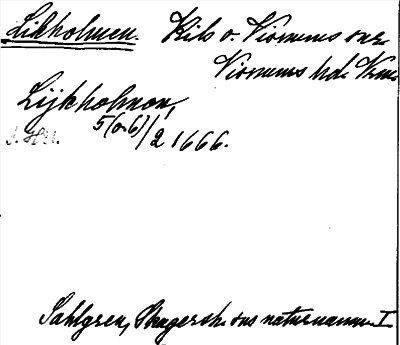 Likholmen. Kils o. Visnums snr.
Visnums hd. Vrm.
Lijkholmon,
5(o.6)/2 1666.
Sahlgren, Skagersh. sns naturnamn I